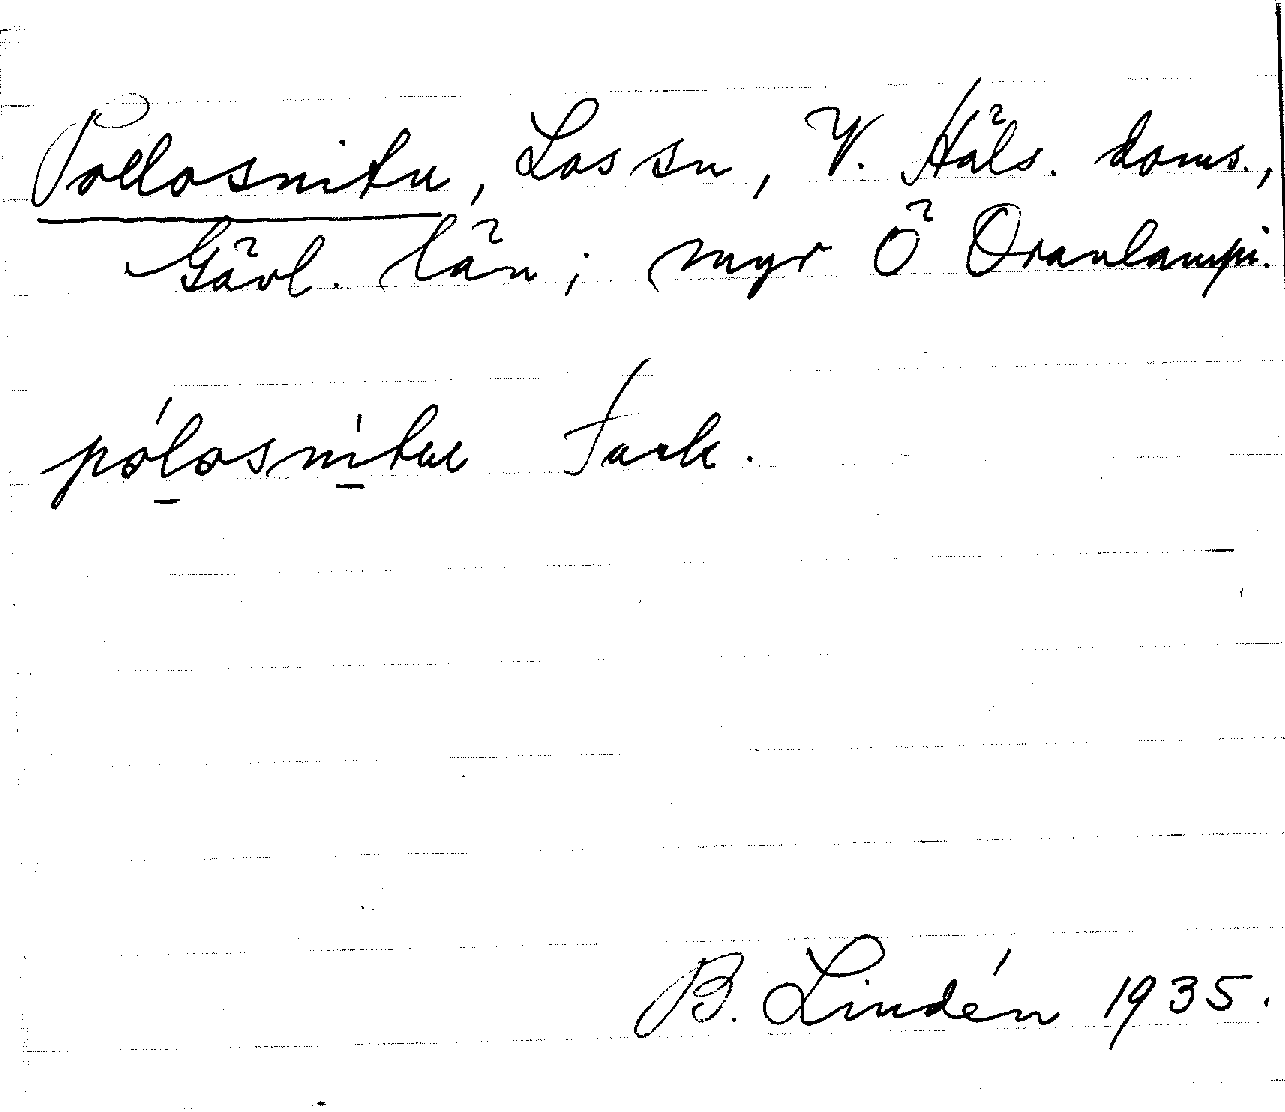 Pollosnitu, Los sn, V. Häls. doms.,
Gävl. län; myr Ö Oranlampi.
pólosnítu
B. Lindén 1935.